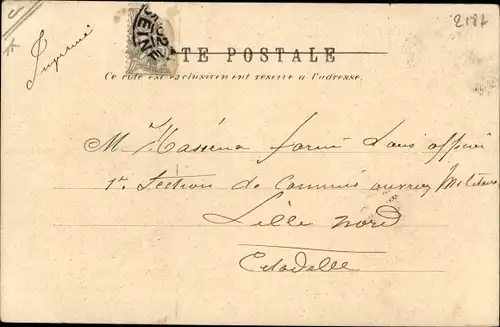 2187
Imprimé
CARTE POSTALE
Ce côté est exclusivement réservé à l'adresse.
M Masséna
1re Section de Commis ouvriers Militaires
Lille Nord
Citadelle